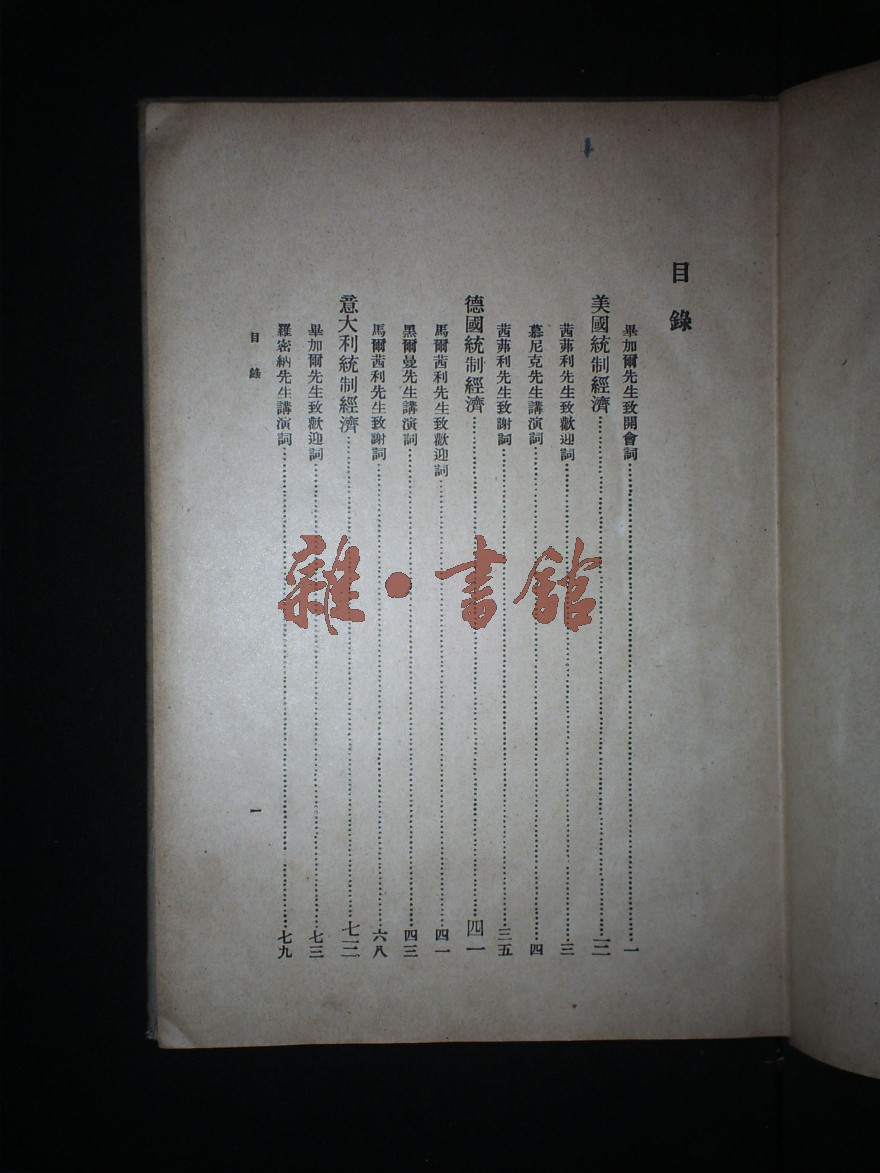 目錄
畢加爾先生致開會詞……一
美國統制經濟……三
茜茀利先生致歡迎詞……三
慕尼克先生講演詞……四
茜茀利先生致謝詞……三五
德國統制經濟……四一
馬爾茜利先生致歡迎詞……四一
黑爾曼先生講演詞……四三
馬爾茜利先生致謝詞……六八
意大利統制經濟……七三
畢加爾先生致歡迎詞……七三
羅密納先生講演詞……七九
目錄
一
雜·書館